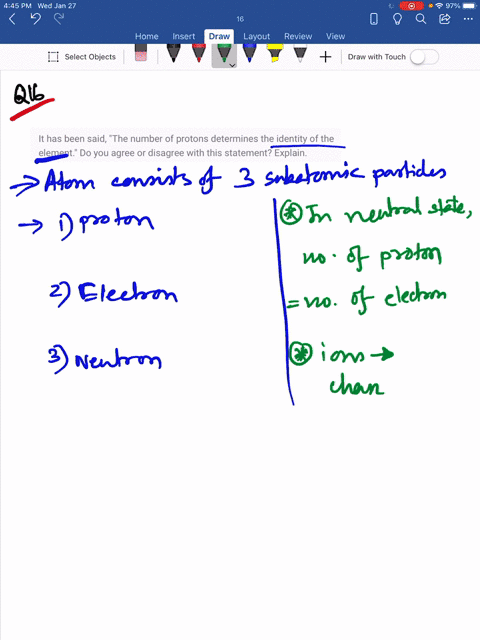 4:45 PM Wed Jan 27
97%
16
Home Insert Draw Layout Review View
Select Objects
Draw with Touch
Q16
It has been said, "The number of protons determines the identity of the
element." Do you agree or disagree with this statement? Explain.
→ Atom consists of 3 subatomic particles
→ 1) proton
2) Electron
3) Neutron
* In neutral state,
no. of proton
= no. of electron
* ions →
chan